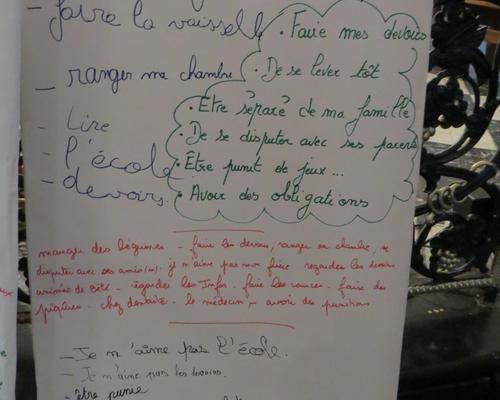 - faire la vaisselle
- ranger ma chambre
- Lire
- l'école
- devoirs.
• Faire mes devoirs
• De se lever tôt
• Etre séparé de ma famille
• De se disputer avec ses parents
• Être punit de jeux...
• Avoir des obligations
manger des légumes - faire les devoirs, ranger sa chambre, se
disputer avec ses ami(es). je n'aime pas non faire regarder les dessins
animés de bébé - regarder les Infos. faire les courses. faire des
piqûres. chez dentiste. le médecin - avoir des punitions
- Je n'aime pas l'école.
- Je n'aime pas les devoirs.
- être punie